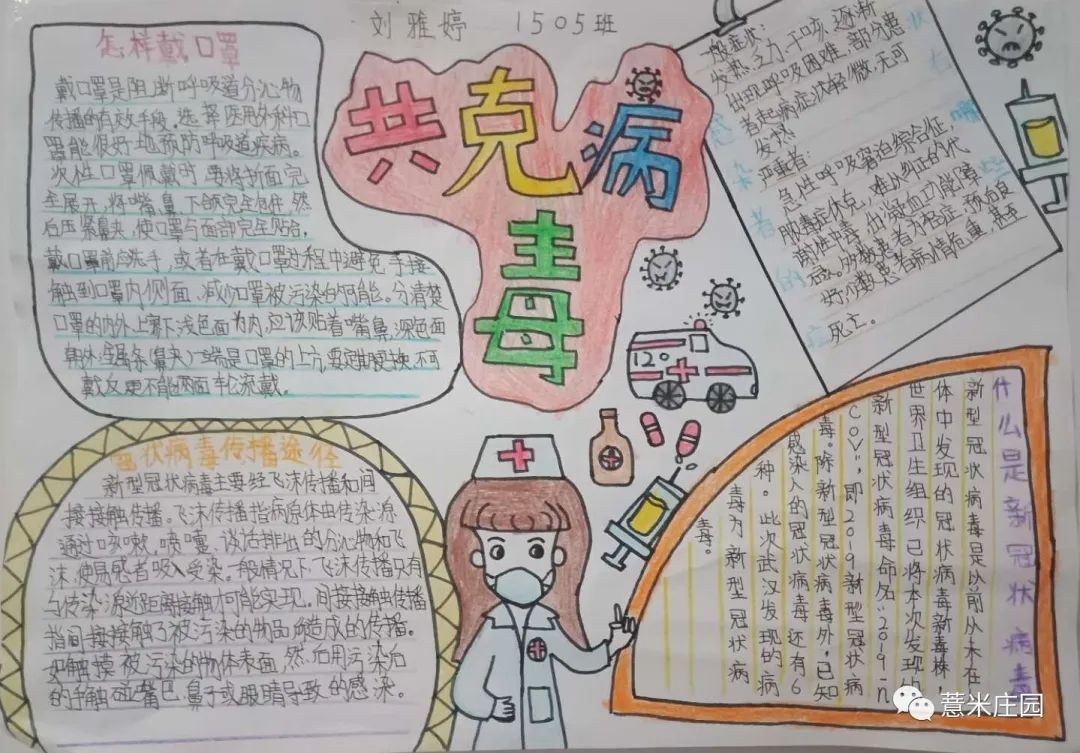 刘雅婷 1505班
共克病
毒
怎样戴口罩
戴口罩是阻断呼吸道分泌物
传播的有效手段。选择医用外科口
罩能很好地预防呼吸道疾病。
次性口罩佩戴时,要将折面完
全展开,将嘴、鼻、下颌完全包住,然
后压紧鼻夹,使口罩与面部完全贴合。
戴口罩前应洗手,或者在戴口罩过程中避免手接
触到口罩内侧面,减少口罩被污染的可能。分清楚
口罩的内外上下,浅色面为内,应该贴着嘴鼻,深色面
朝外;金属条(鼻夹)一端是口罩的上方,要定期更换,不可
戴反,更不能两面轮流戴。
一般症状:
发热、乏力、干咳、逐渐
出现呼吸困难,部分患
者起病症状轻微,无可
发热
严重者:
急性呼吸窘迫综合征,
脓毒症休克,难以纠正的代
谢性中毒,出凝血功能障
碍。多数患者为轻症,预后良
好,少数患者病情危重,甚至
死亡。
感染者的症
状有哪些
120
冠状病毒传播途径
新型冠状病毒主要经飞沫传播和间
接接触传播。飞沫传播指病原体由传染源
通过咳嗽、喷嚏、谈话排出的分泌物和飞
沫,使易感者吸入受染。一般情况下,飞沫传播只有
与传染源近距离接触才可能实现。间接接触传播
指间接接触了被污染的物品所造成的传播。
如触摸被污染的物体表面,然后用污染后
的手触碰嘴巴、鼻子或眼睛导致的感染。
什么是新冠状病毒
新型冠状病毒是以前从未在
体中发现的冠状病毒新毒株
世界卫生组织已将本次发现的
新型冠状病毒命名“2019-n
COV”,即2019新型冠状病
毒。除新型冠状病毒外,已知
感染人的冠状病毒还有6
种。此次武汉发现的病
毒为新型冠状病
毒。
薏米庄园